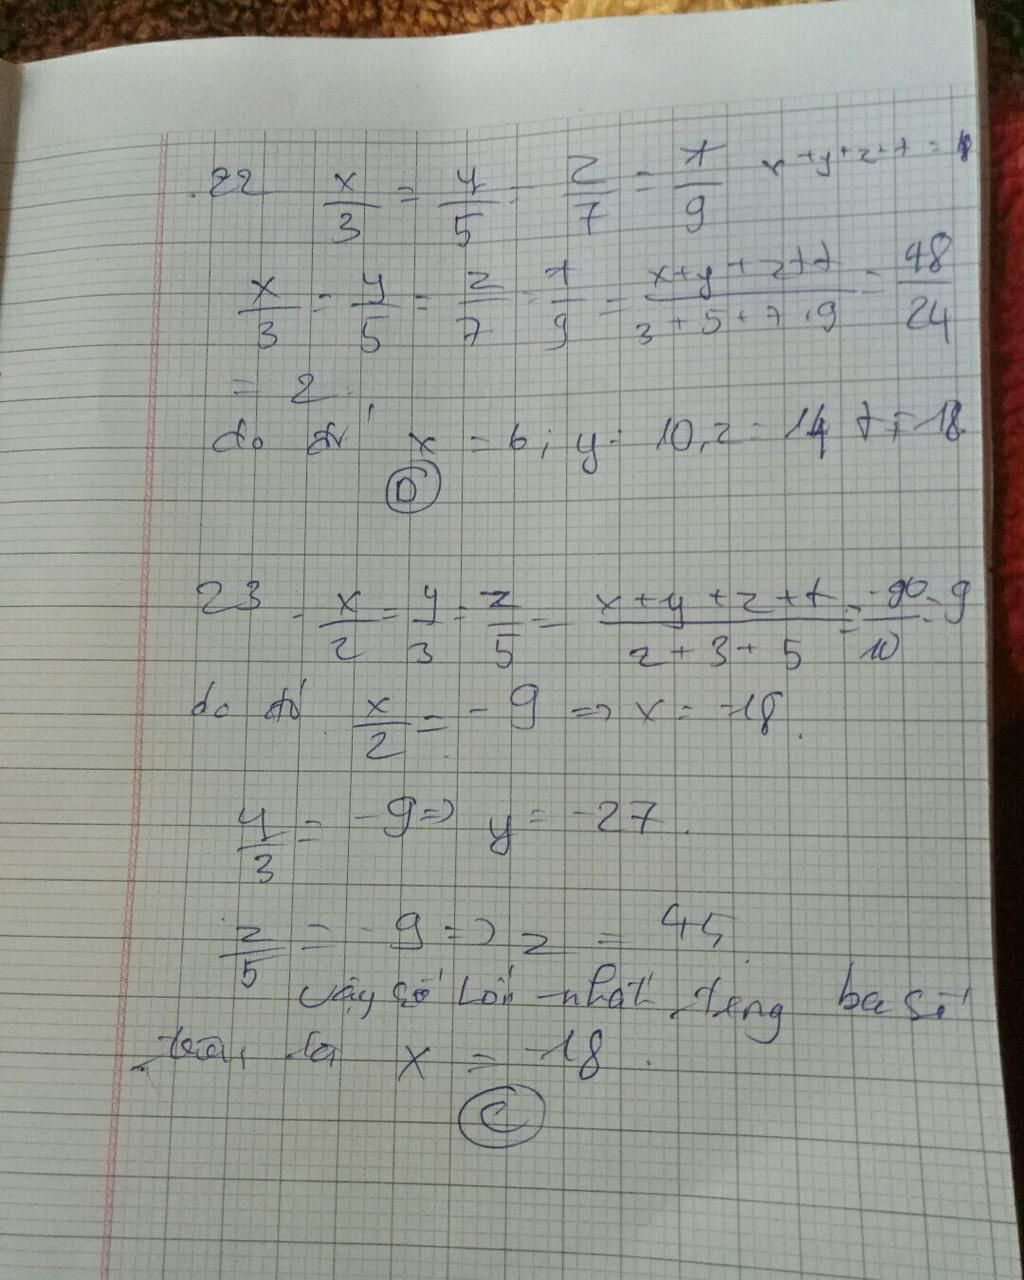 22 x/3 = y/5 = z/7 = t/9 x+y+z+t =
x/3 = y/5 = z/7 = t/9 = x+y+z+t/3+5+7+9 = 48/24
= 2
do đó x = 6; y = 10, z = 14 t = 18
D
23 - x/2 = y/3 = z/5 = x+y+z+t/2+3+5 = -90/10 = -9
do đó x/2 = -9 => x = -18.
y/3 = -9 => y = -27.
z/5 = -9 => z = 45
vậy số lớn nhất trong ba số
trên là x = -18.
C